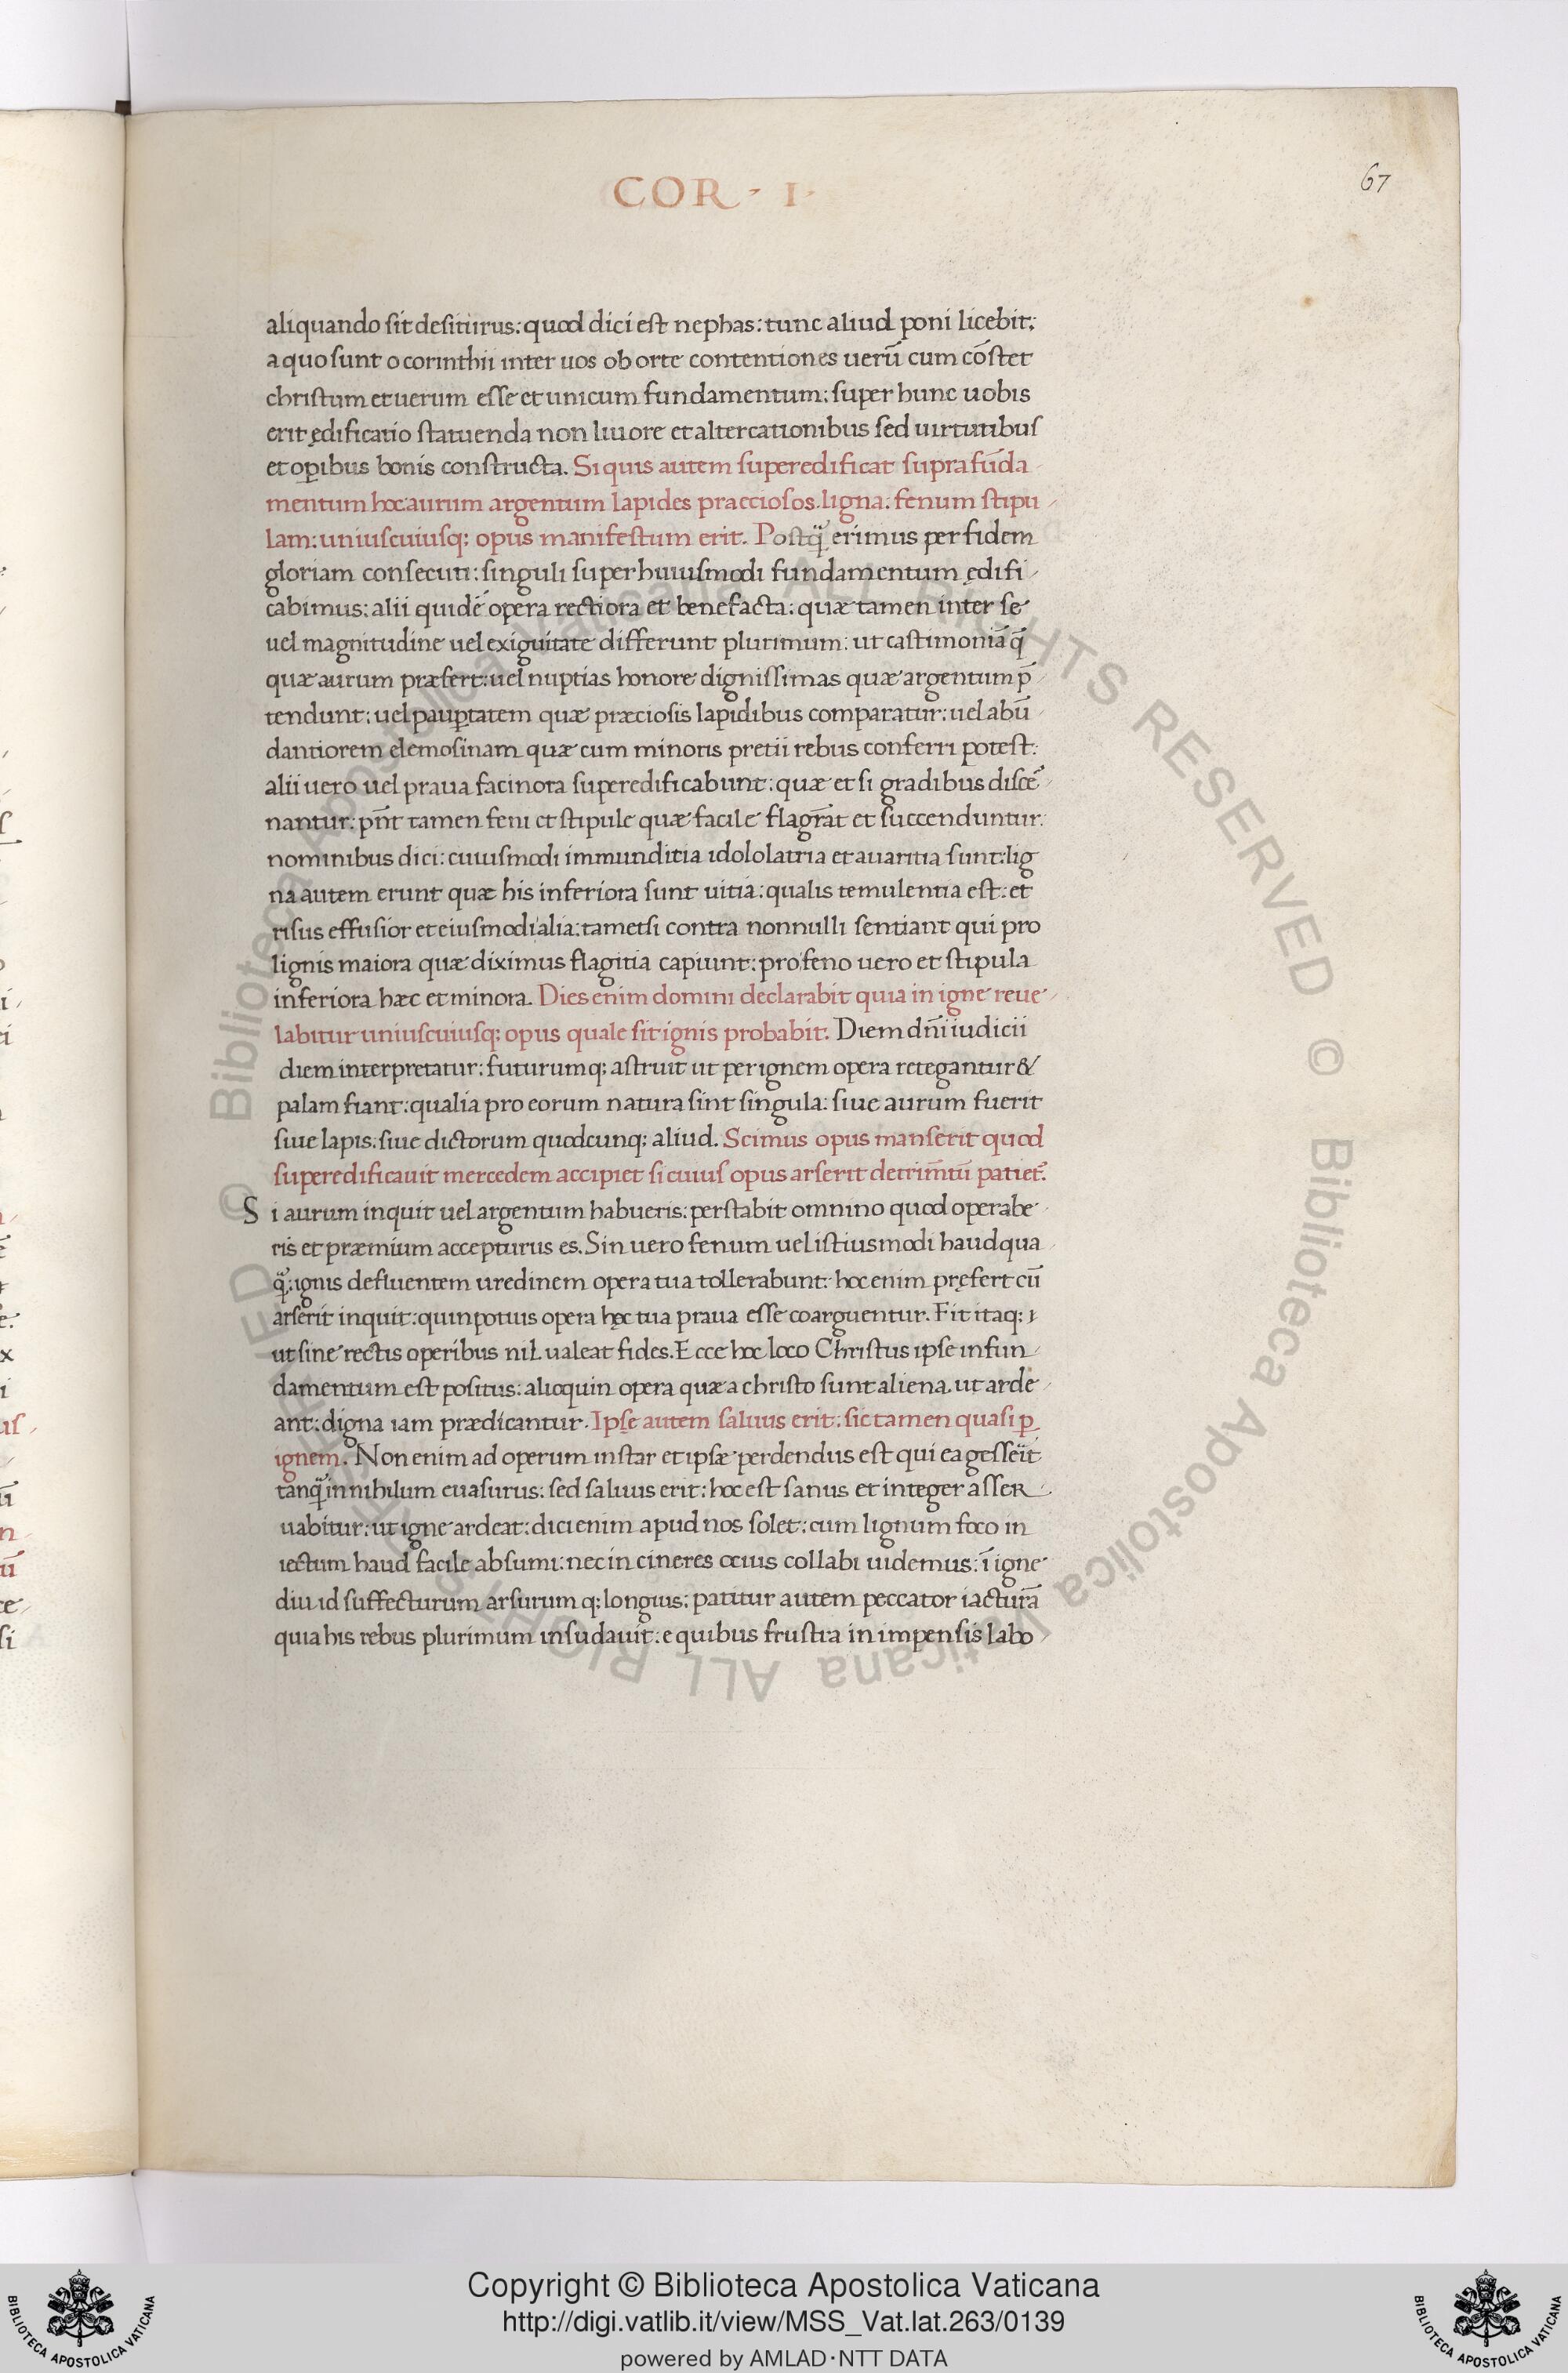 COR · I ·
67
aliquando sit desiturus: quod dici est nephas: tunc aliud poni licebit:
a quo sunt o corinthii inter uos ob orte contentiones uerū cum cōstet
christum et uerum esse et unicum fundamentum: super hunc uobis
erit ędificatio statuenda non liuore et altercationibus sed uirtutibus
et oꝑibus bonis constructa. Si quis autem superedificat supra fūda
mentum hoc aurum argentum lapides praeciosos. ligna: fenum stipu
lam: uniuscuiusq; opus manifestum erit. Postq̃ erimus per fidem
gloriam consecuti: singuli super huiusmodi fundamentum ędifi
cabimus: alii quidē opera rectiora et benefacta: quæ tamen inter se
uel magnitudine uel exiguitate differunt plurimum: ut castimoniā q̄
quæ aurum præfert: uel nuptias honore dignissimas quæ argentum p̄
tendunt: uel pauꝑtatem quæ præciosis lapidibus comparatur: uel abū
dantiorem elemosinam quæ cum minoris pretii rebus conferri potest:
alii uero uel praua facinora superedificabunt: quæ et si gradibus discē
nantur: pn̄t tamen feni et stipule quæ facile flagrāt et succenduntur:
nominibus dici: cuiusmodi immunditia idololatria et auaritia sunt: lig
na autem erunt quæ his inferiora sunt uitia: qualis temulentia est: et
risus effusior et eiusmodi alia: tametsi contra nonnulli sentiant qui pro
lignis maiora quæ diximus flagitia capiunt: pro feno uero et stipula
inferiora hæc et minora. Dies enim domini declarabit quia in igne reue
labitur uniuscuiusq; opus quale sit ignis probabit. Diem dn̄i iudicii
diem interpretatur: futurumq; astruit ut per ignem opera retegantur &
palam fiant: qualia pro eorum natura sint singula: siue aurum fuerit
siue lapis: siue dictorum quodcunq; aliud. Scimus opus manserit quod
superedificauit mercedem accipiet si cuius opus arserit detrim̄tū patiet̃.
Si aurum inquit uel argentum habueris: perstabit omnino quod operabe
ris et præmium accepturus es. Sin uero fenum uel istiusmodi haud qua
q̃: ignis defluentem uredinem opera tua tollerabunt: hoc enim pręfert cū
arserit inquit: quin potius opera hęc tua praua esse coarguentur. Fit itaq:
ut sine rectis operibus nil ualeat fides. Ecce hoc loco Christus ipse in fun
damentum est positus: alioquin opera quæ a christo sunt aliena. ut arde
ant: digna iam prædicantur. Ipse autem saluus erit: sic tamen quasi ꝑ
ignem. Non enim ad operum instar et ipsæ perdendus est qui ea gesserit
tanq̃ in nihilum euasurus: sed saluus erit: hoc est sanus et integer asser
uabitur: ut igne ardeat: dici enim apud nos solet: cum lignum foco in
iectum haud facile absumi: nec in cineres ocius collabi uidemus: ī igne
diu id suffecturum arsurum q; longius: patitur autem peccator iacturā
quia his rebus plurimum insudauit: e quibus frustra in impensis labo
© Biblioteca Apostolica Vaticana ALL RIGHTS RESERVED © Biblioteca Apostolica Vaticana ALL RIGHTS RESERVED
Copyright © Biblioteca Apostolica Vaticana
http://digi.vatlib.it/view/MSS_Vat.lat.263/0139
powered by AMLAD·NTT DATA
BIBLIOTECA APOSTOLICA VATICANA
BIBLIOTECA APOSTOLICA VATICANA